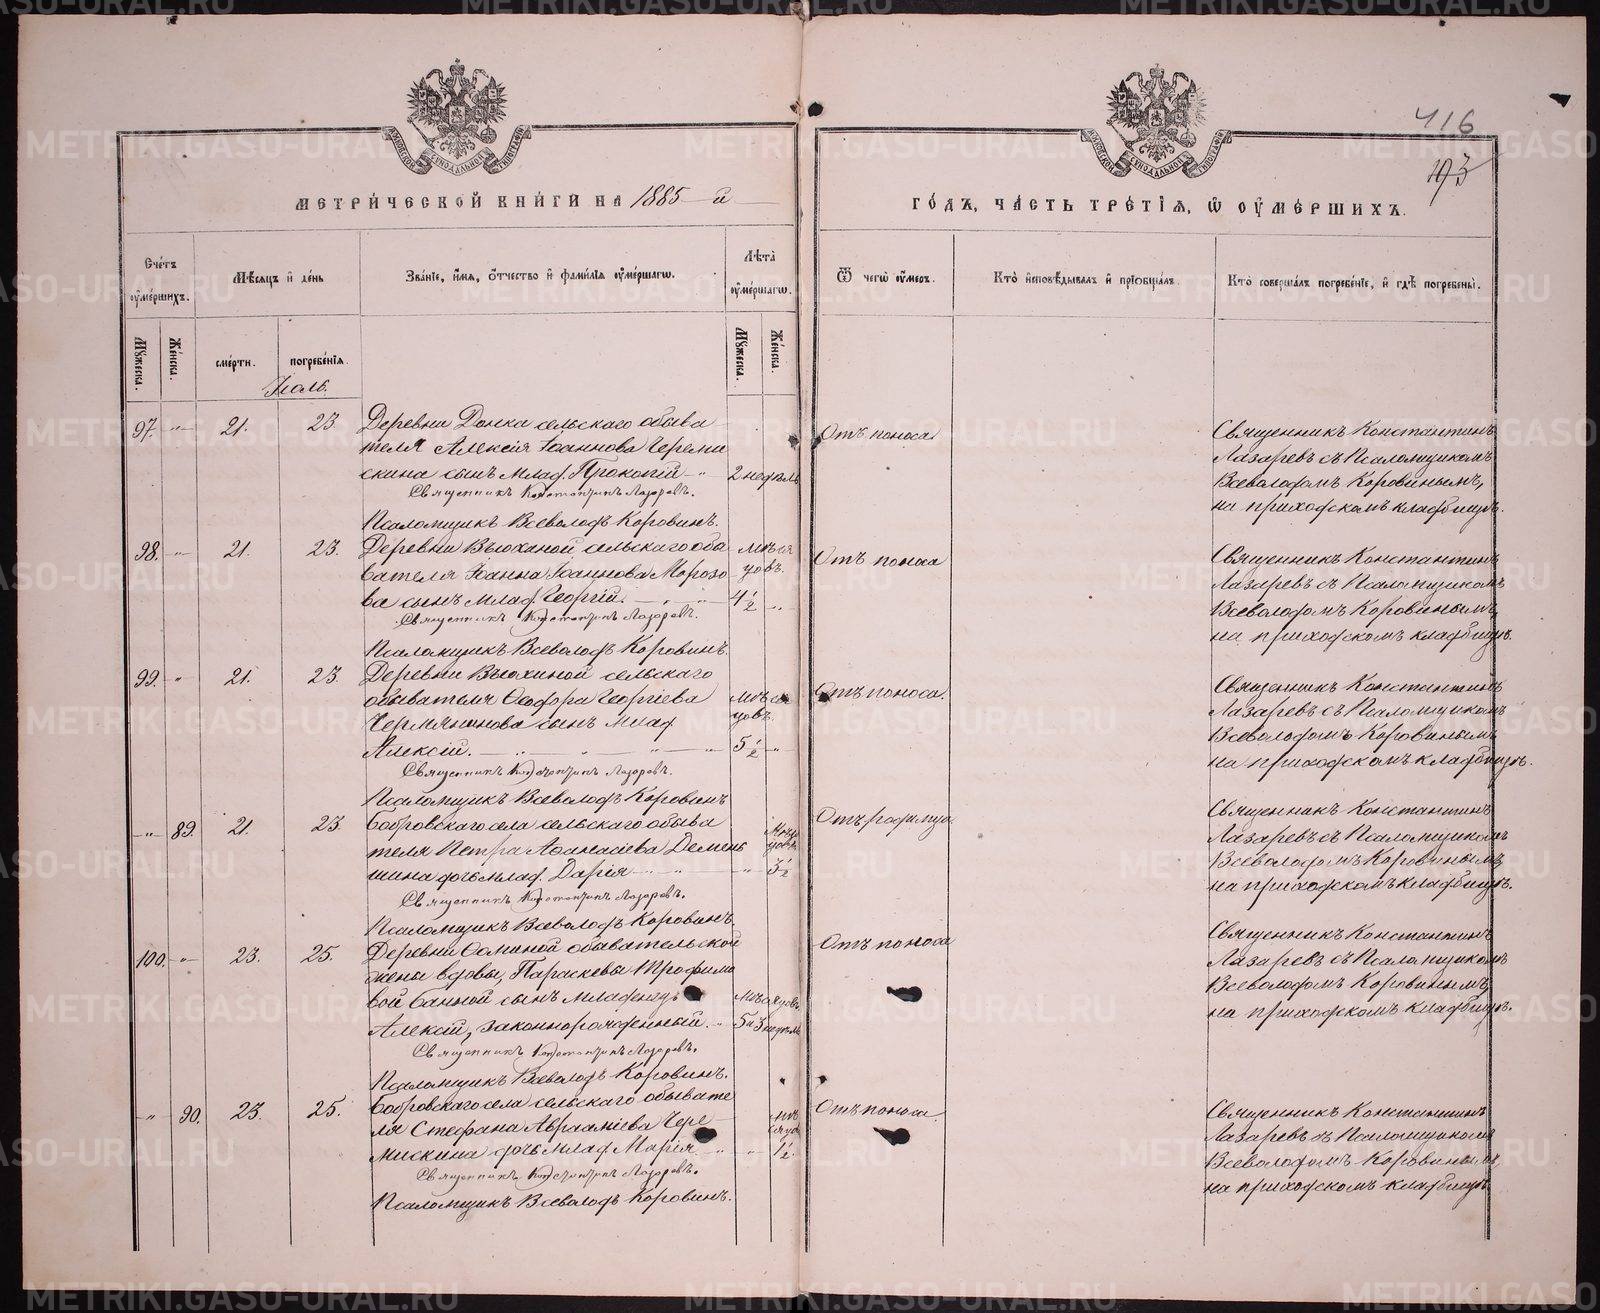 416
193
МЕТРИ́ЧЕСКОЙ КНИ́ГИ НА 1885 й
ГО́ДЪ, ЧА́СТЬ ТРЕ́ТІЯ, Ѽ ОУМЕ́РШИХЪ.
Счетъ оумершихъ.
Мѣсяцъ и день
Званіе, имя, отчество и фамилія оумершагѡ.
Лѣта оумершагѡ.
Ѿ чегѡ оумеръ.
Кто исповѣдывалъ и пріобщалъ.
Кто совершалъ погребеніе, и гдѣ погребены.
Мужеска.
Женска.
смерти.
погребенія.
Мужеска.
Женска.
Іюль.
97. „ 21. 23. Деревни Донка сельскаго обыва
теля Алексія Іоаннова Череми
скина сынъ млад. Прокопій 2 недѣль
Священникъ Константинъ Лазаревъ.
Псаломщикъ Всеволодъ Коровинъ.
Отъ поноса
Священникъ Константинъ
Лазаревъ съ Псаломщикомъ
Всеволодомъ Коровинымъ,
на приходскомъ кладбищѣ.
98. „ 21. 23. Деревни Вьюхиной сельскаго обы
вателя Іоанна Іоаннова Морозо
ва сынъ млад. Георгій. мѣсяцовъ. 4 1/2 „
Священникъ Константинъ Лазаревъ.
Псаломщикъ Всеволодъ Коровинъ.
Отъ поноса
Священникъ Константинъ
Лазаревъ съ Псаломщикомъ
Всеволодомъ Коровинымъ,
на приходскомъ кладбищѣ.
99. „ 21. 23. Деревни Вьюхиной сельскаго
обывателя Ѳеодора Георгіева
сынъ млад
Алексій. мѣсяцовъ. 5 1/2 „
Священникъ Константинъ Лазаревъ.
Псаломщикъ Всеволодъ Коровинъ
Отъ поноса.
Священникъ Константинъ
Лазаревъ съ Псаломщикомъ
Всеволодомъ Коровинымъ
на приходскомъ кладбищѣ.
„ 89. 21. 23. Бобровскаго села сельскаго обыва
теля Петра Аѳанасіева Демень
шина дочь млад. Дарія „ мѣсяцовъ 3 1/2
Священникъ Константинъ Лазаревъ.
Псаломщикъ Всеволодъ Коровинъ.
Отъ родимца
Священникъ Константинъ
Лазаревъ съ Псаломщикомъ
Всеволодомъ Коровинымъ
на приходскомъ кладбищѣ.
100. „ 23. 25. Деревни обывательской
жены вдовы, Параскевы Трофимо
вой сынъ младенецъ
Алексій, законнорожденный. мѣсяцовъ 5 и 3 недѣль
Священникъ Константинъ Лазаревъ.
Псаломщикъ Всеволодъ Коровинъ.
Отъ поноса
Священникъ Константинъ
Лазаревъ съ Псаломщикомъ
Всеволодомъ Коровинымъ
на приходскомъ кладбищѣ.
„ 90. 23. 25. Бобровскаго села сельскаго обывате
ля Стефана Авраамiева Чере-
мискина дочь млад Марія „ мѣсяцо 1 1/2
Священникъ Константинъ Лазаревъ.
Псаломщикъ Всеволодъ Коровинъ.
Отъ поноса
Священникъ Константинъ
Лазаревъ съ Псаломщикомъ
Всеволодомъ Коровинымъ,
на приходскомъ кладбищѣ.
METRIKI.GASO-URAL.RU